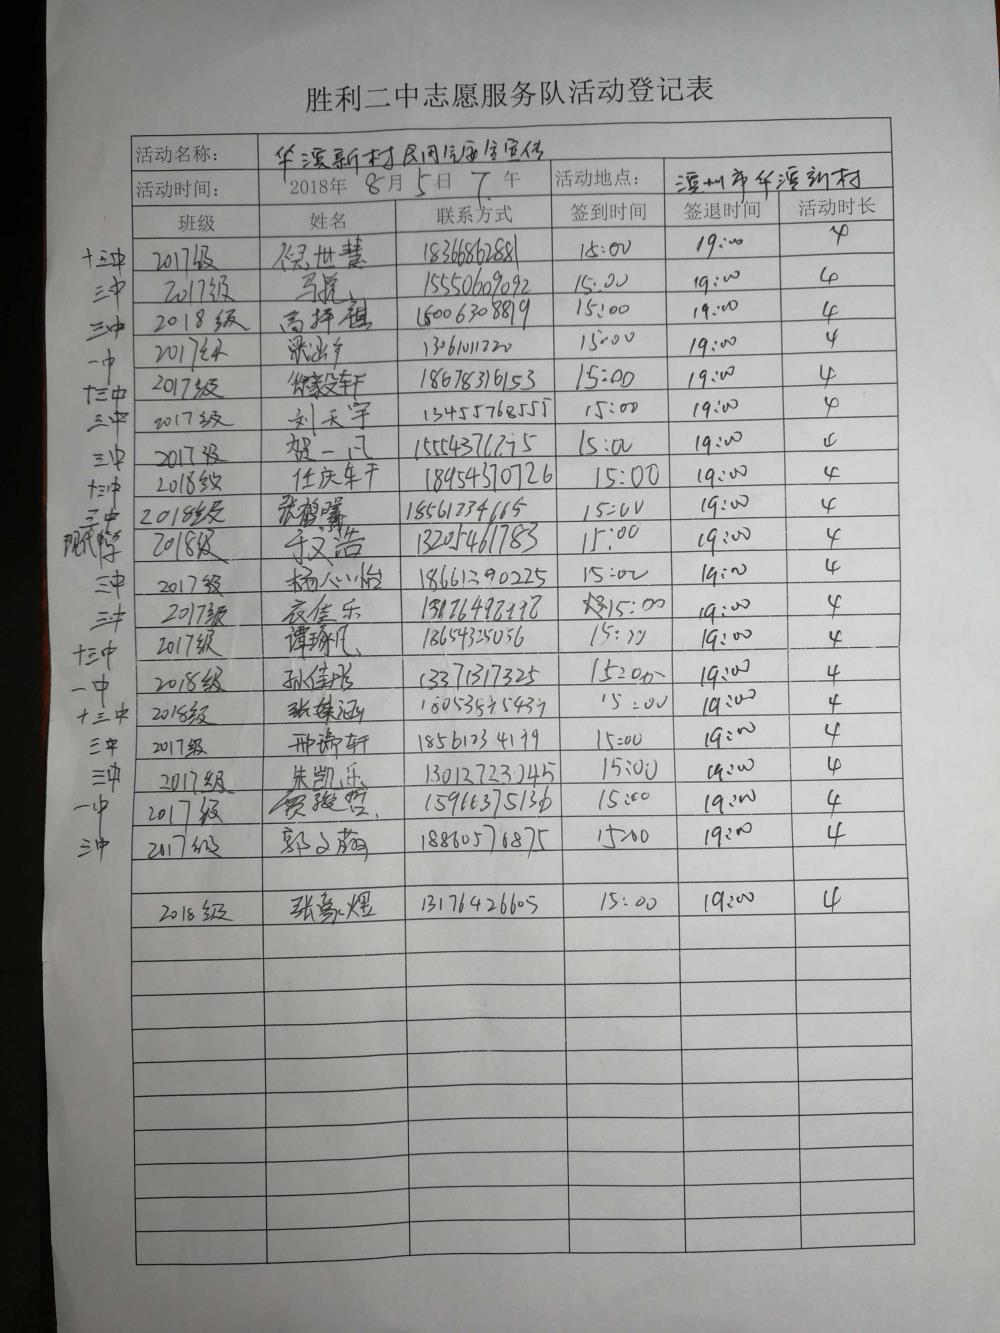 胜利二中志愿服务队活动登记表
活动名称： 华滨新村民用气安全宣传
活动时间： 2018年 8月5日 下午 活动地点： 滨州市华滨新村
班级 姓名 联系方式 签到时间 签退时间 活动时长
十三中 2017级 世慧 18366862881 15:00 19:00 4
三中 2017级 马 15550609092 15:00 19:00 4
三中 2018级 高 15006308819 15:00 19:00 4
一中 2017级 梁 13061011220 15:00 19:00 4
十三中 2017级 徐毅轩 18678316153 15:00 19:00 4
三中 2017级 刘天宇 13455768555 15:00 19:00 4
三中 2017级 贺一凡 15:00 19:00 4
十三中 2018级 任庆 18954370726 15:00 19:00 4
三中 2018级 张 18561234665 15:00 19:00 4
现代中学 2018级 于文浩 13205461783 15:00 19:00 4
三中 2017级 杨心怡 18661390225 15:00 19:00 4
三中 2017级 袁佳乐 15:00 19:00 4
十三中 2017级 谭琢凡 18654325056 15:00 19:00 4
一中 2018级 孙佳彤 13371317325 15:00 19:00 4
十三中 2018级 张 涵 15:00 19:00 4
三中 2017级 邢瑞轩 18561234199 15:00 19:00 4
三中 2017级 朱凯乐 15:00 19:00 4
一中 2017级 贾骏哲 15966375136 15:00 19:00 4
三中 2017级 郭文 18860576875 15:00 19:00 4
2018级 张豪煜 13176426605 15:00 19:00 4